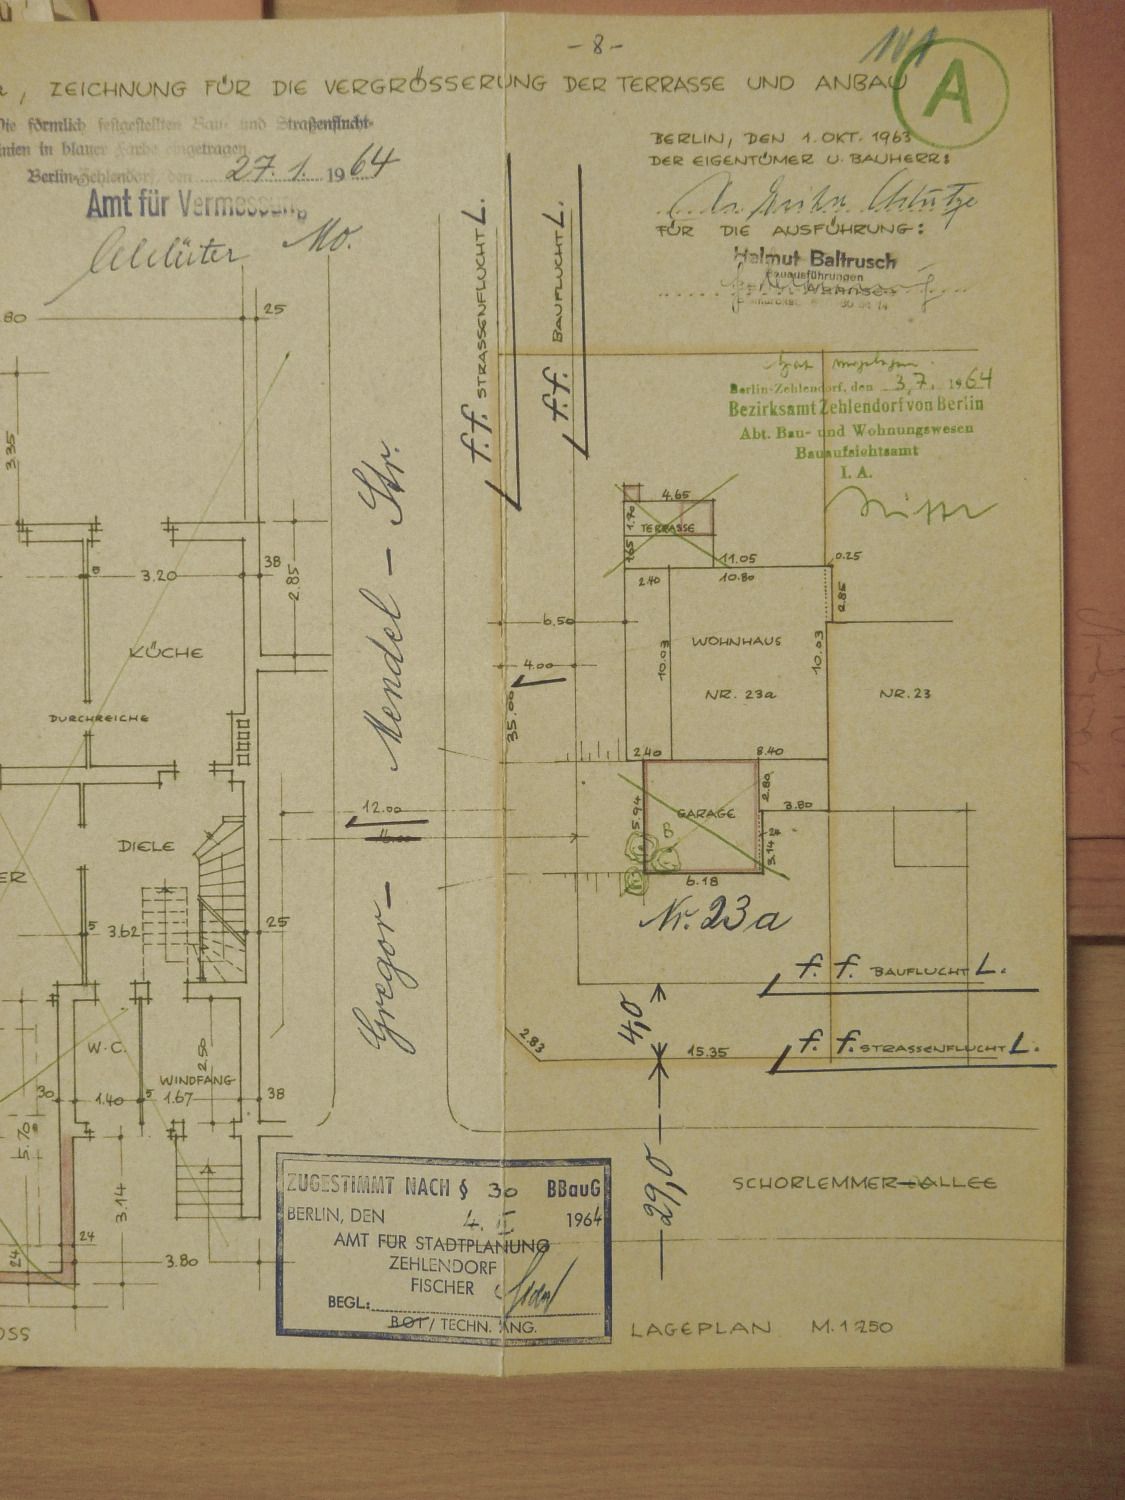 - 8 -
, ZEICHNUNG FÜR DIE VERGRÖSSERUNG DER TERRASSE UND ANBAU
A
Die förmlich festgestellten Bau- und Straßenflucht-
linien in blauer Farbe eingetragen
Berlin-Zehlendorf, den 27. 1. 1964
Amt für Vermessung
Mo.
BERLIN, DEN 1. OKT. 1963
DER EIGENTÜMER U. BAUHERR:
FÜR DIE AUSFÜHRUNG:
Helmut Baltrusch
Bauausführungen
f.f. STRASSENFLUCHT L.
f.f. BAUFLUCHT L.
Berlin-Zehlendorf, den 3. 7. 1964
Bezirksamt Zehlendorf von Berlin
Abt. Bau- und Wohnungswesen
Bauaufsichtsamt
I. A.
80
25
3.35
3.20
38
2.85
KÜCHE
DURCHREICHE
DIELE
ER
5
3.62
25
W.C.
2.50
WINDFANG
30
1.40
5
1.67
38
5.70
3.14
24
24
3.80
OSS
Gregor - Mendel - Str.
12.00
4.65
1.70
TERRASSE
1.65
11.05
0.25
2.40
10.80
2.85
6.50
WOHNHAUS
4.00
10.03
10.03
NR. 23a
NR. 23
35.00
2.40
8.40
2.80
5.94
GARAGE
3.80
24
3.14
6.18
Nr. 23a
f. f. BAUFLUCHT L.
4,0
2.83
15.35
f. f. STRASSENFLUCHT L.
29,0
SCHORLEMMER-ALLEE
ZUGESTIMMT NACH § 30 BBauG
BERLIN, DEN 4. II 1964
AMT FÜR STADTPLANUNG
ZEHLENDORF
FISCHER
BEGL:
BOT / TECHN. ANG.
LAGEPLAN M. 1:250